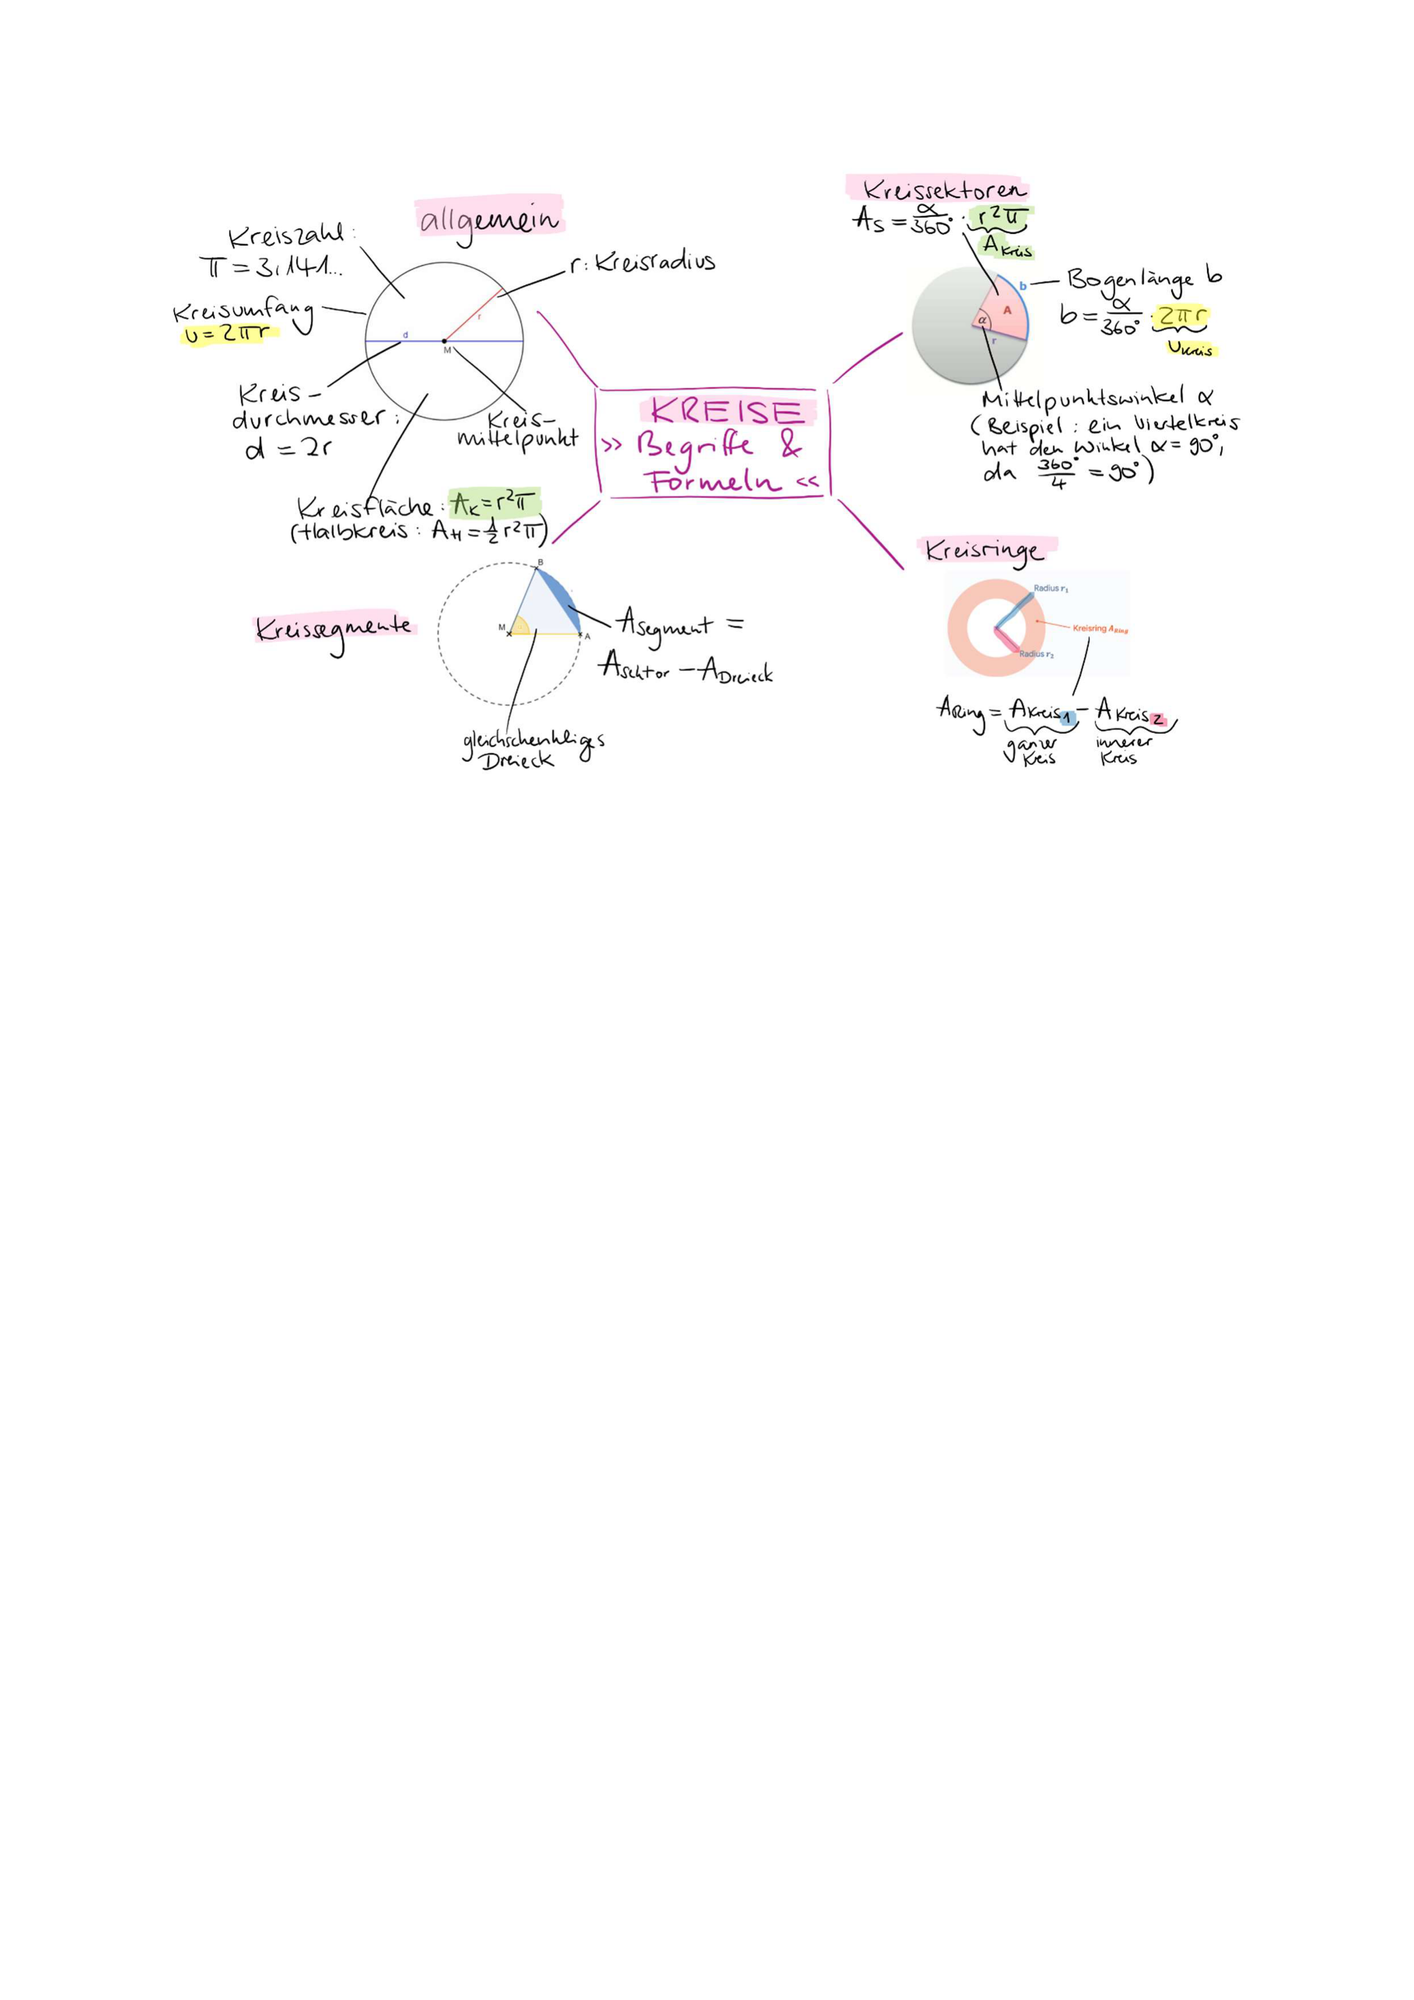 allgemein
Kreiszahl:
π = 3,141...
r: Kreisradius
Kreisumfang
U = 2πr
r
d
M
Kreis-
durchmesser:
d = 2r
Kreis-
mittelpunkt
Kreisfläche: A_K = r²π
(Halbkreis: A_H = 1/2 r²π)
KREISE
>> Begriffe &
Formeln <<
Kreissektoren
A_S = α/360° · r²π
A_Kreis
b
A
α
r
Bogenlänge b
b = α/360° · 2πr
U_Kreis
Mittelpunktswinkel α
(Beispiel: ein Viertelkreis
hat den Winkel α = 90°,
da 360°/4 = 90°)
Kreissegmente
B
M
A
A_Segment =
A_Sektor − A_Dreieck
gleichschenkliges
Dreieck
Kreisringe
Radius r₁
Kreisring A_Ring
Radius r₂
A_Ring = A_Kreis1 − A_Kreis2
ganzer
Kreis
innerer
Kreis